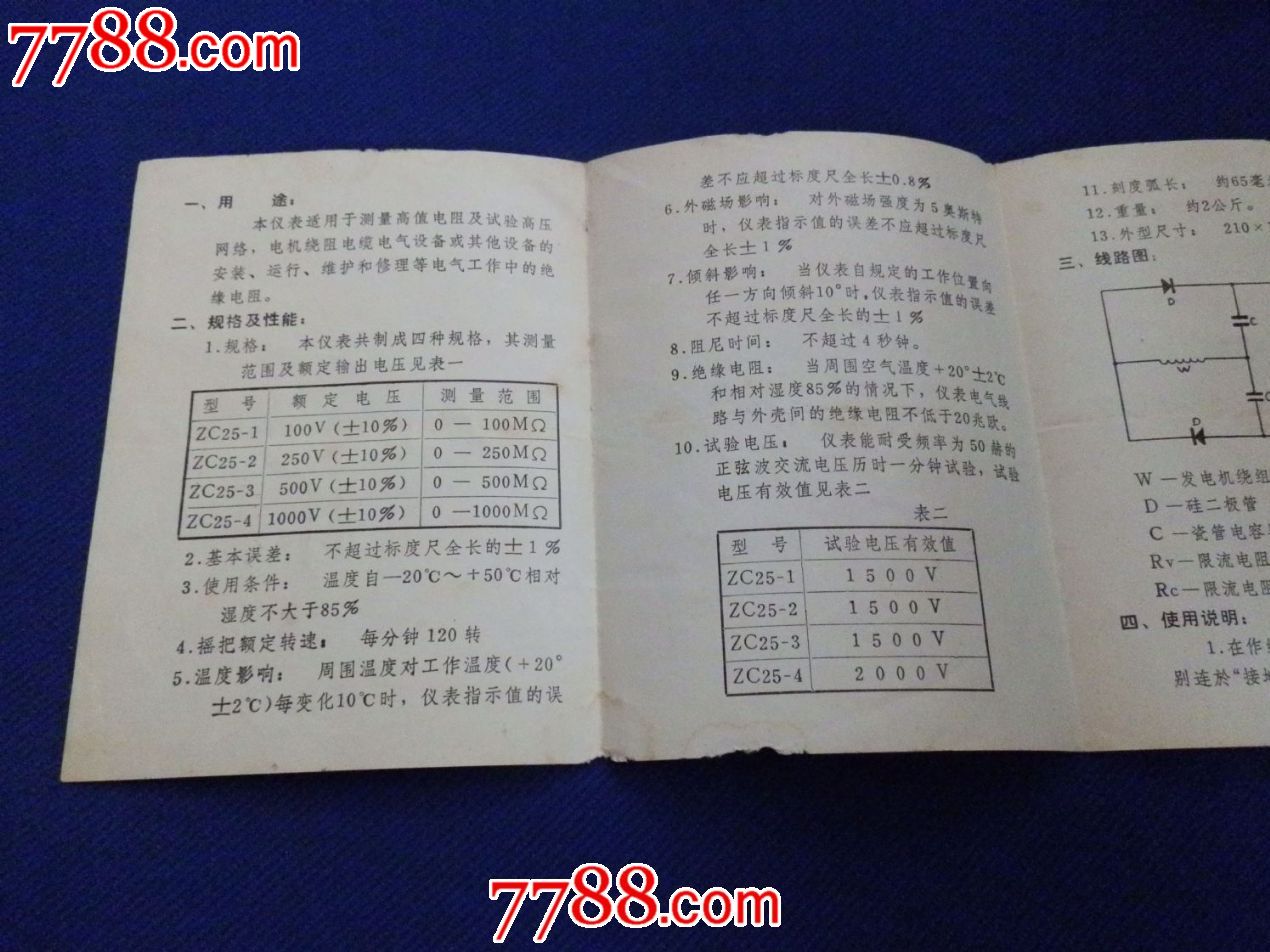 7788.com
一、用 途：
本仪表适用于测量高值电阻及试验高压
网络，电机绕阻电缆电气设备或其他设备的
安装、运行、维护和修理等电气工作中的绝
缘电阻。
二、规格及性能：
1.规格： 本仪表共制成四种规格，其测量
范围及额定输出电压见表一
型 号 额 定 电 压 测 量 范 围
ZC25-1 100V(±10%) 0 — 100MΩ
ZC25-2 250V(±10%) 0 — 250MΩ
ZC25-3 500V(±10%) 0 — 500MΩ
ZC25-4 1000V(±10%) 0 —1000MΩ
2.基本误差： 不超过标度尺全长的±1%
3.使用条件： 温度自—20℃～+50℃相对
湿度不大于85%
4.摇把额定转速： 每分钟120转
5.温度影响： 周围温度对工作温度(+20°
±2℃)每变化10℃时，仪表指示值的误
差不应超过标度尺全长±0.8%
6.外磁场影响： 对外磁场强度为5奥斯特
时，仪表指示值的误差不应超过标度尺
全长±1%
7.倾斜影响： 当仪表自规定的工作位置向
任一方向倾斜10°时，仪表指示值的误差
不超过标度尺全长的±1%
8.阻尼时间： 不超过4秒钟。
9.绝缘电阻： 当周围空气温度+20°±2℃
和相对湿度85%的情况下，仪表电气线
路与外壳间的绝缘电阻不低于20兆欧。
10.试验电压： 仪表能耐受频率为50赫的
正弦波交流电压历时一分钟试验，试验
电压有效值见表二
表二
型 号 试验电压有效值
ZC25-1 1500V
ZC25-2 1500V
ZC25-3 1500V
ZC25-4 2000V
11.刻度弧长： 约65毫
12.重量： 约2公斤。
13.外型尺寸： 210×
三、线路图：
D
C
W
C
D
W—发电机绕组
D—硅二极管
C—瓷管电容
Rv—限流电阻
Rc—限流电阻
四、使用说明：
1.在作
别连於“接地
7788.com